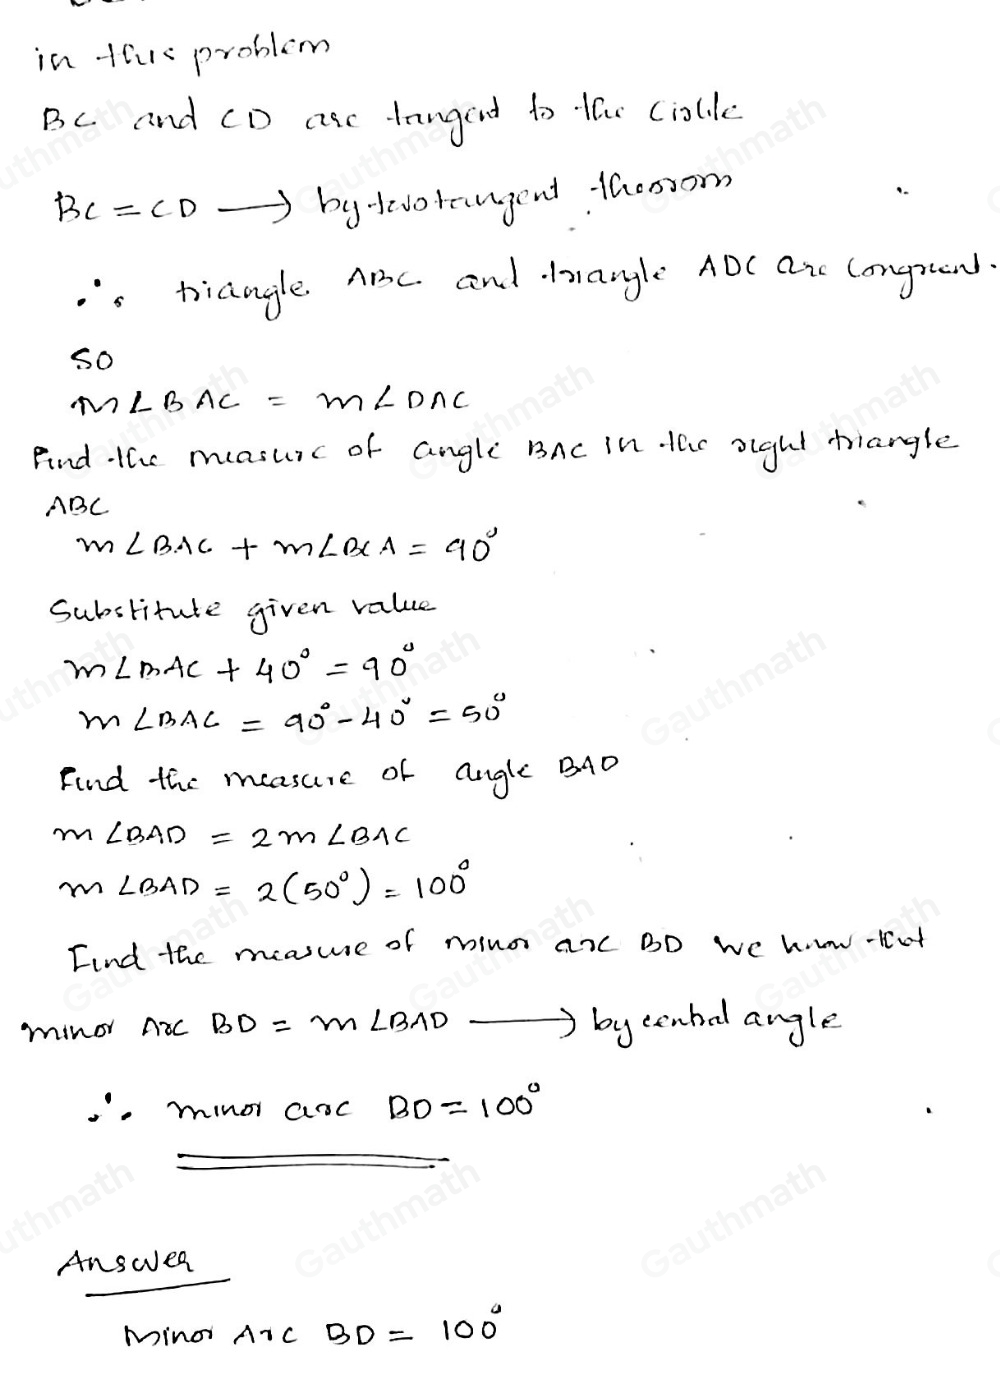 in this problem
BC and CD are tangent to the cislile
BC = CD ⟶ by two tangent theorom
∴ triangle ABC and triangle ADC are congruent.
SO
m∠BAC = m∠DAC
Find the measure of angle BAC in the right triangle
ABC
m∠BAC + m∠BCA = 90°
Substitute given value
m∠BAC + 40° = 90°
m∠BAC = 90° - 40° = 50°
Find the measure of angle BAD
m∠BAD = 2m∠BAC
m∠BAD = 2(50°) = 100°
Find the measure of minor arc BD we know that
minor Arc BD = m∠BAD ⟶ by central angle
∴ minor arc BD = 100°
Answer
Minor Arc BD = 100°